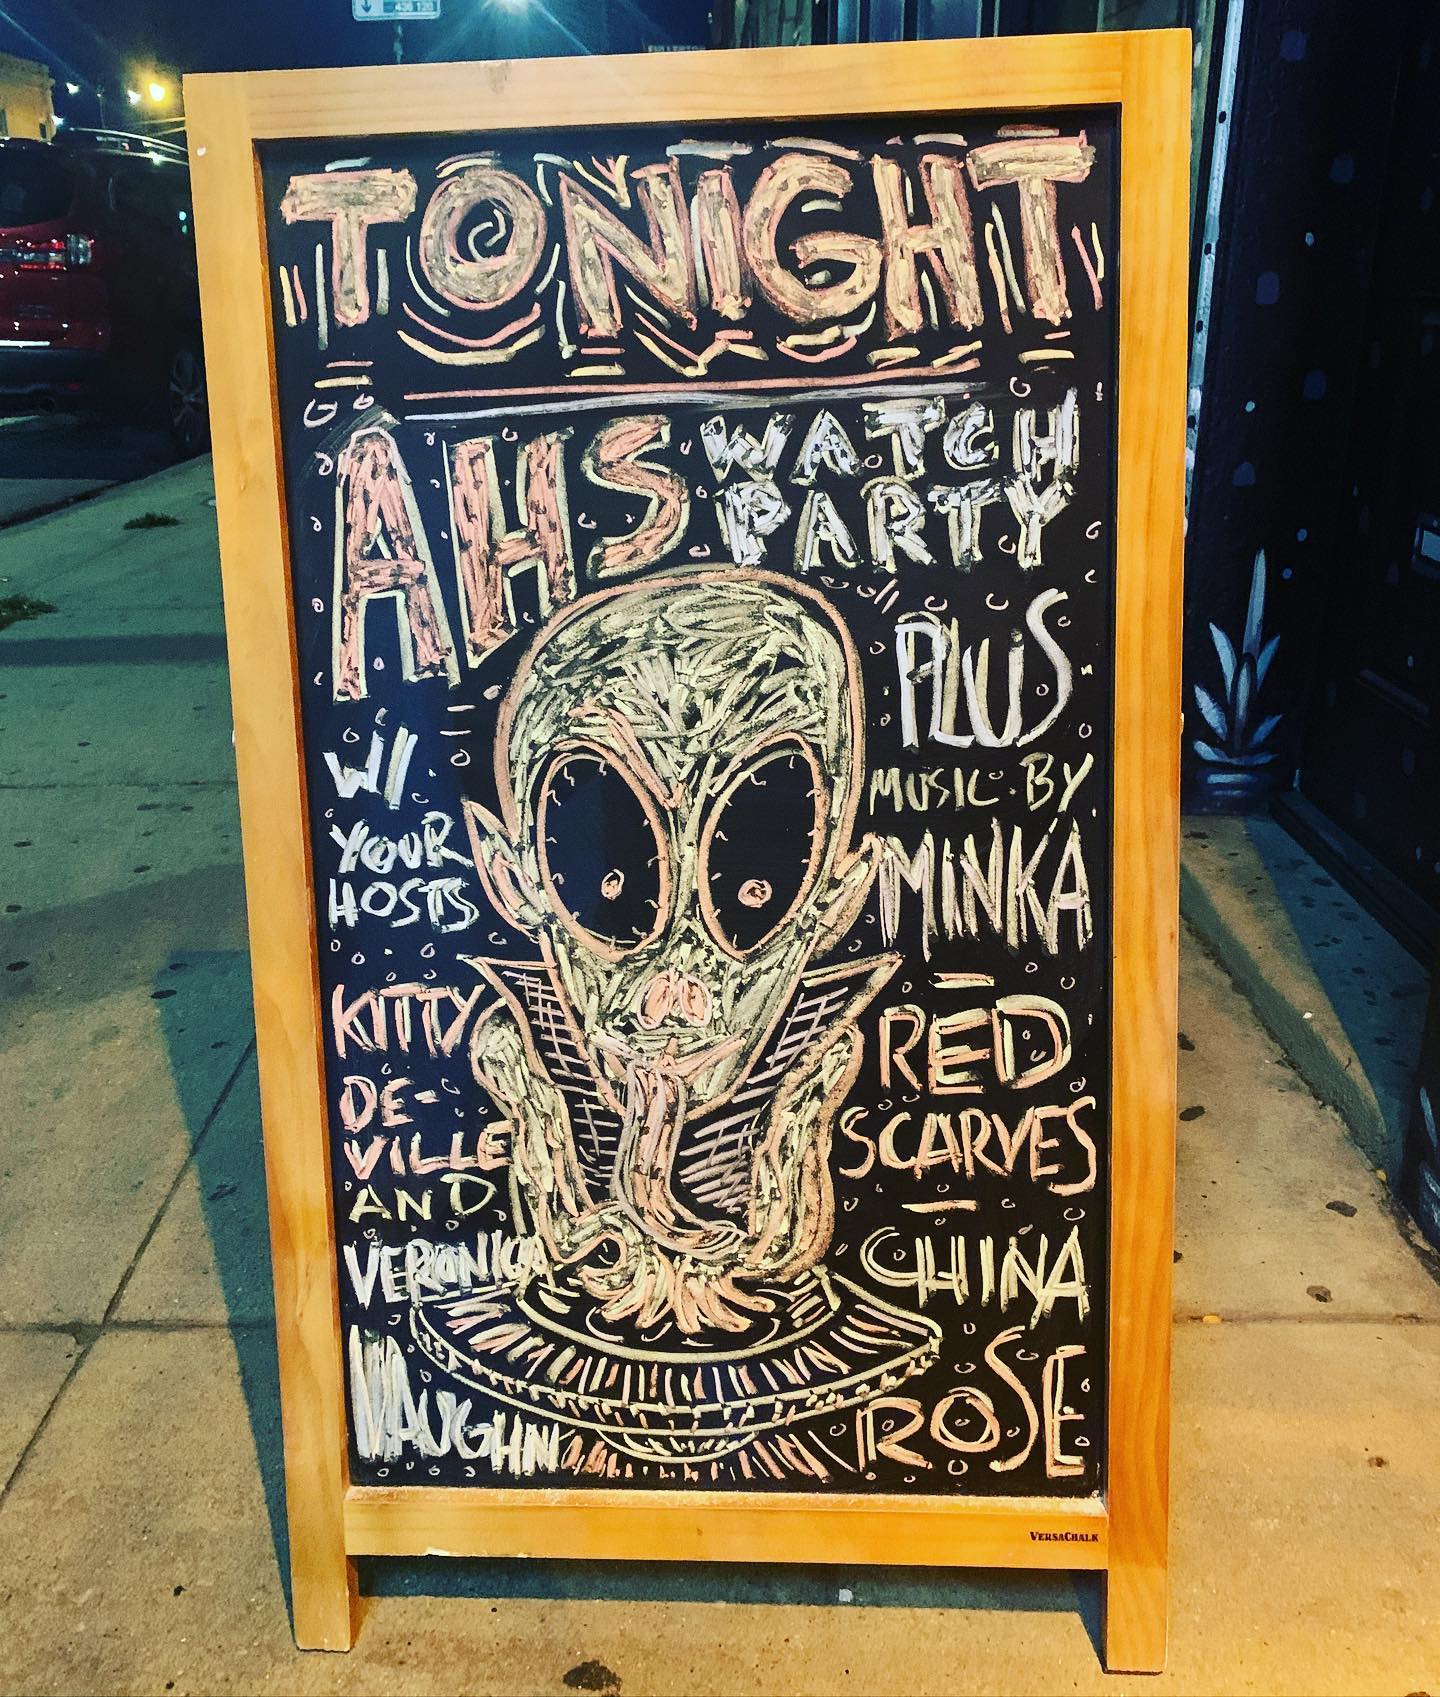 TONIGHT
AHS WATCH
PARTY
W/
YOUR
HOSTS
KITTY
DE-
VILLE
AND
VERONICA
VAUGHN
PLUS
MUSIC BY
MINKA
RED
SCARVES
CHINA
ROSE
VERSACHALK